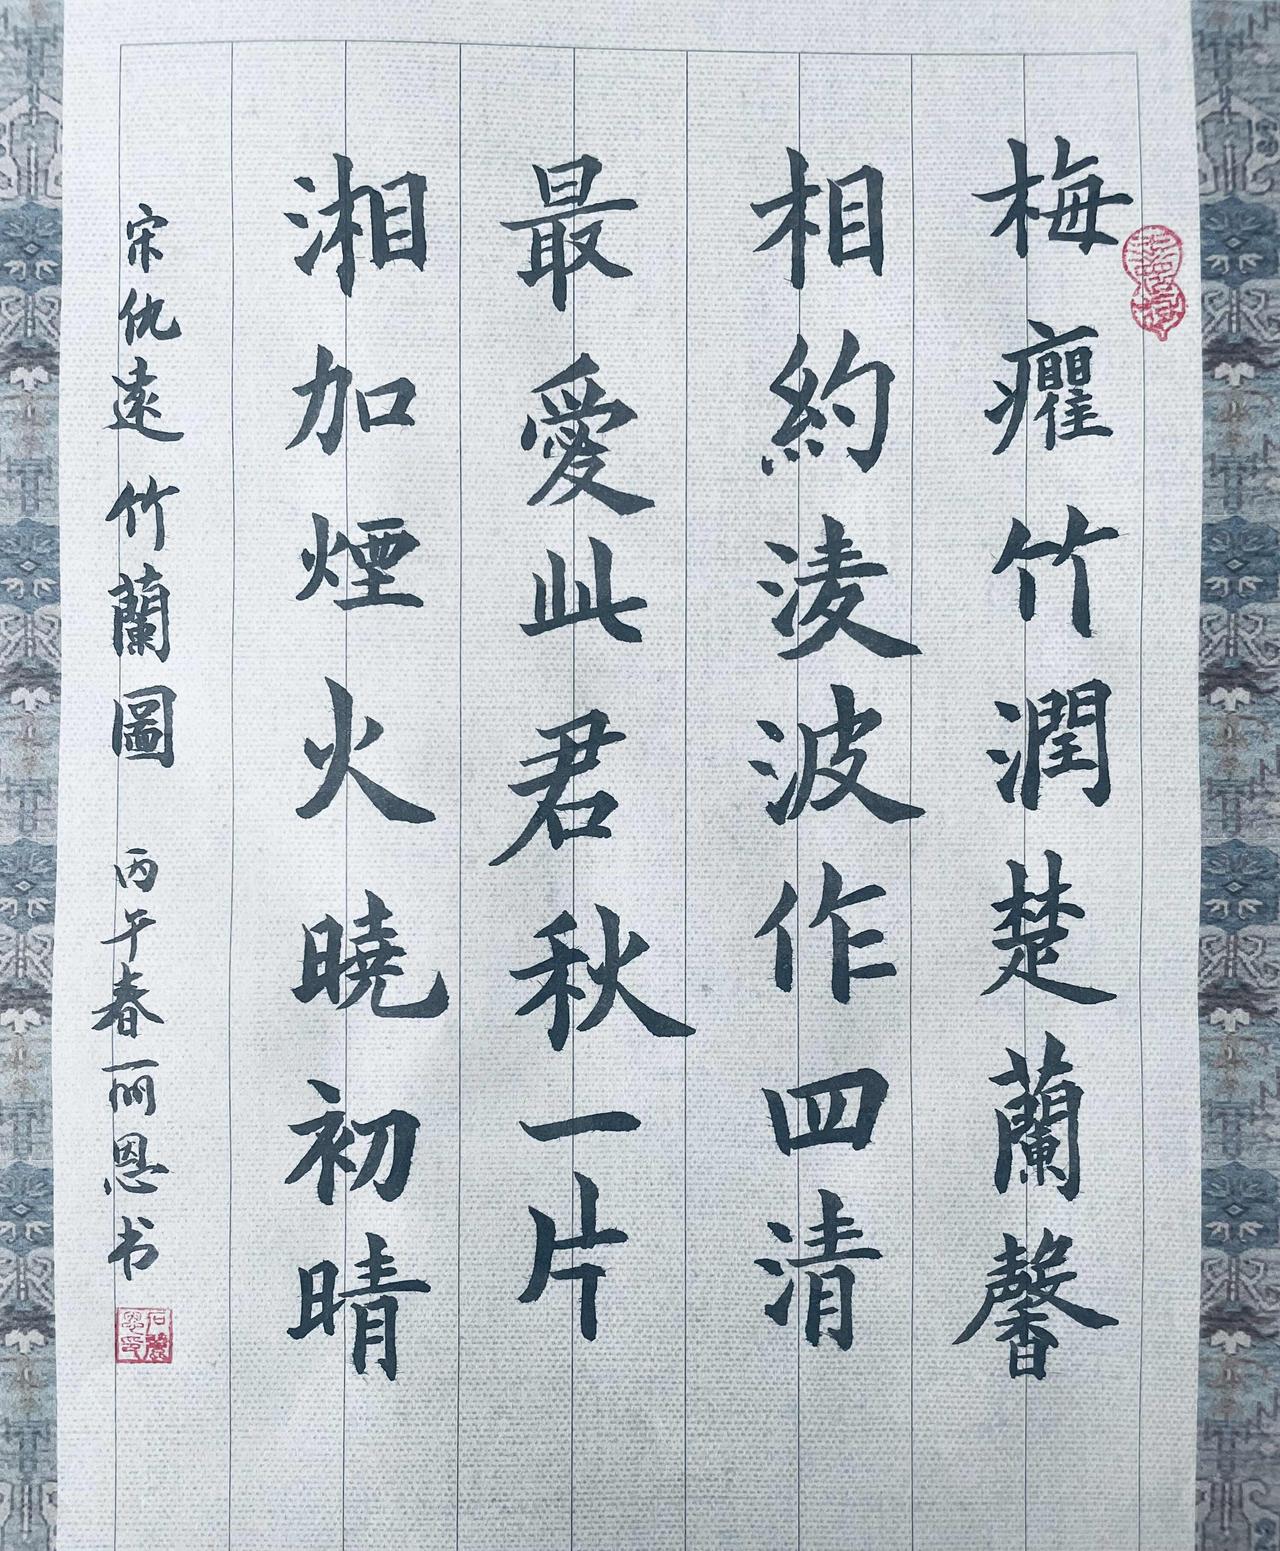 梅癯竹潤楚蘭馨
相約淩波作四清
最愛此君秋一片
湘加煙火曉初晴
宋仇遠竹蘭圖 丙午春丽恩书